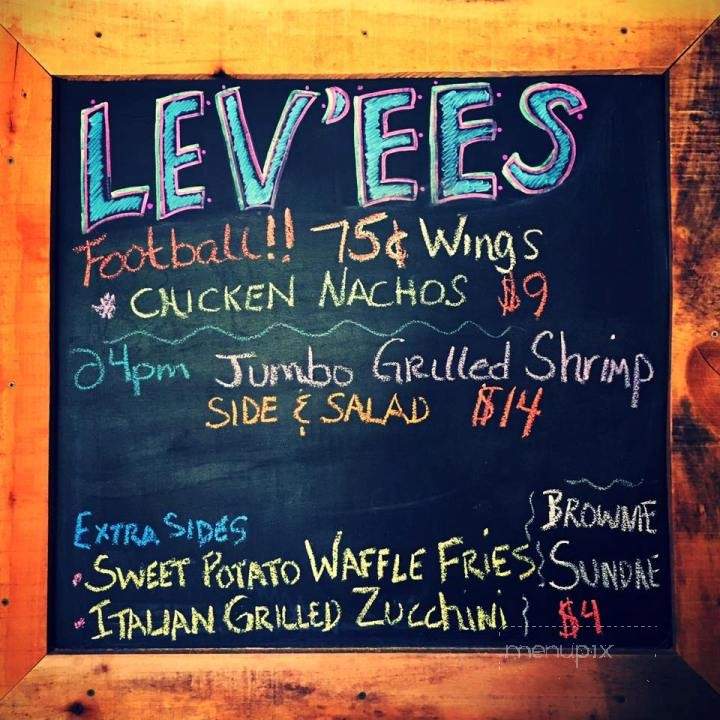 LEV'EES
Football!! 75¢ Wings
* CHICKEN NACHOS $9
@4pm Jumbo Grilled Shrimp
SIDE & SALAD $14
EXTRA SIDES
• SWEET POTATO WAFFLE FRIES
• ITALIAN GRILLED ZUCCHINI
BROWNIE
SUNDAE
$4
menupix